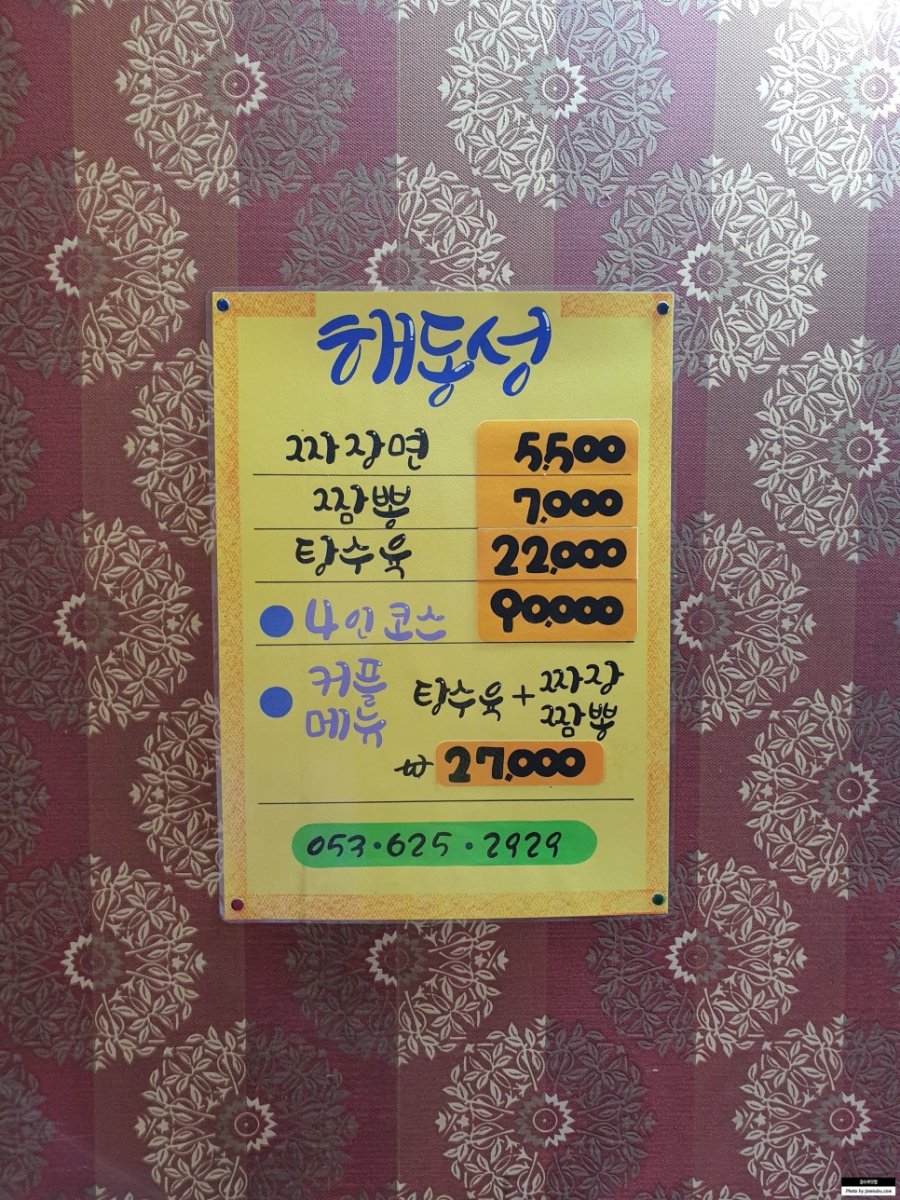 해동성
짜장면 5,500
짬뽕 7,000
탕수육 22,000
4인 코스 90,000
커플 메뉴 탕수육 + 짜장 짬뽕
₩ 27,000
053·625·2929
Photo by jonsuliv.com